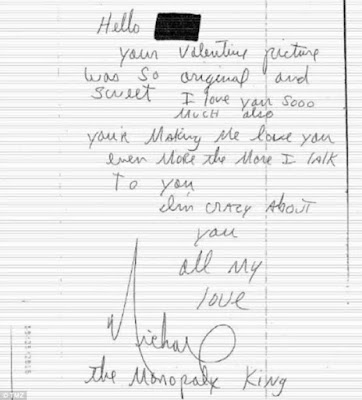 Hello
your Valentine picture
was so original and
sweet I love you sooo
much also
your Making Me love you
even More the More I talk
To you
I'm CRAZY About
you
all my
love
Michael
the Monopoly King
© TMZ